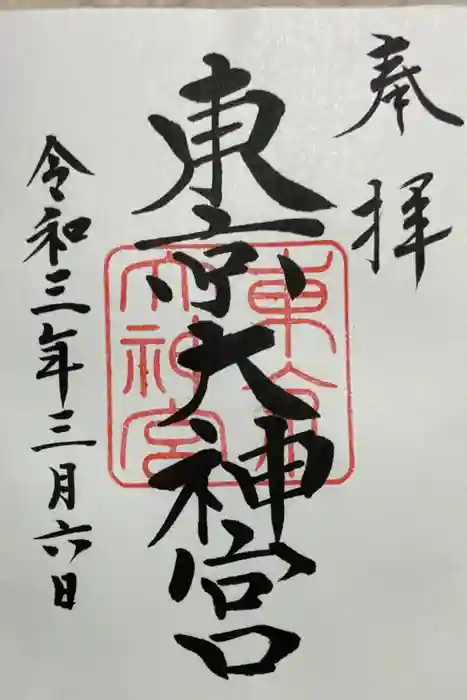 奉拝
東京大神宮
東京
大神宮
令和三年三月六日